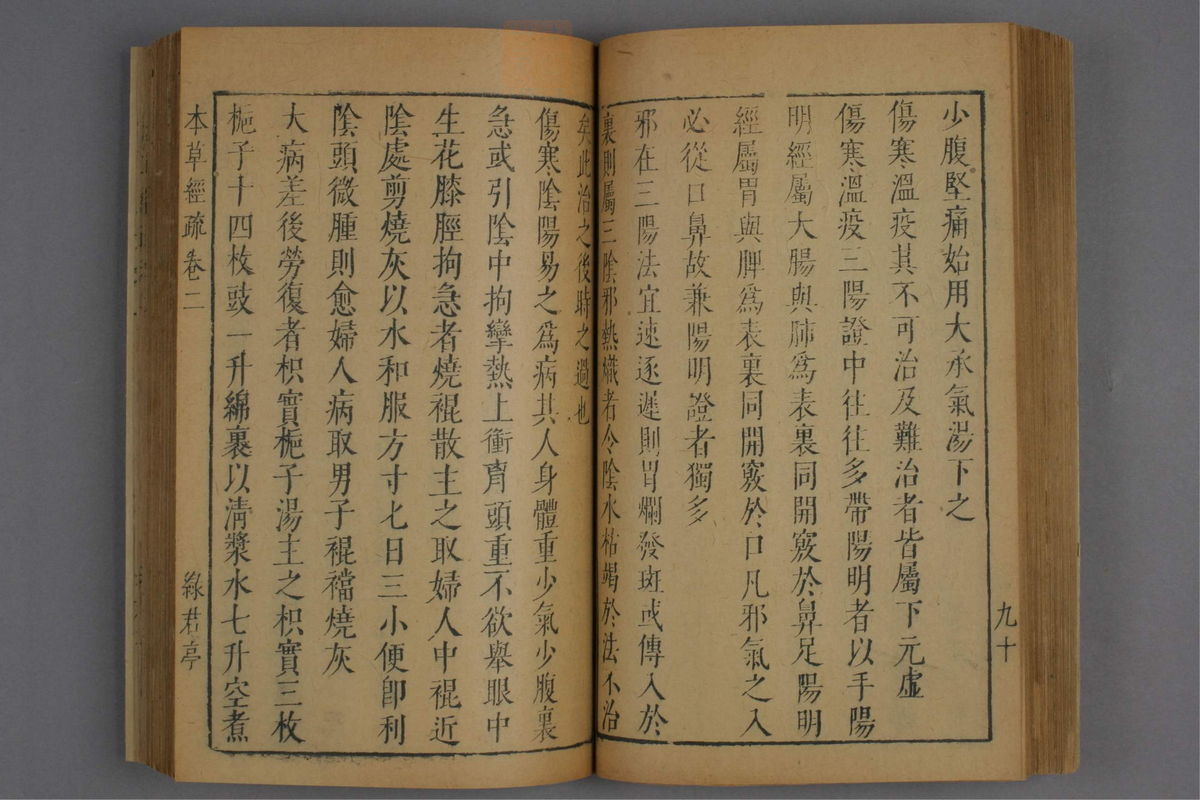 少腹堅痛始用大承氣湯下之
傷寒溫疫其不可治及難治者皆屬下元虛
傷寒溫疫三陽證中往往多帶陽明者以手陽
明經屬大腸與肺爲表裏同開竅於鼻足陽明
經屬胃與脾爲表裏同開竅於口凡邪氣之入
必從口鼻故兼陽明證者獨多
邪在三陽法宜速逐遲則胃爛發斑或傳入於
裏則屬三陰邪熱熾者令陰水枯竭於法不治
九十
矣此治之後時之過也
傷寒陰陽易之爲病其人身體重少氣少腹裏
急或引陰中拘攣熱上衝胷頭重不欲舉眼中
生花膝脛拘急者燒裩散主之取婦人中裩近
陰處剪燒灰以水和服方寸匕日三小便卽利
陰頭微腫則愈婦人病取男子裩襠燒灰
大病差後勞復者枳實梔子湯主之枳實三枚
梔子十四枚豉一升綿裹以清漿水七升空煮
本草經疏 卷二
綠君亭